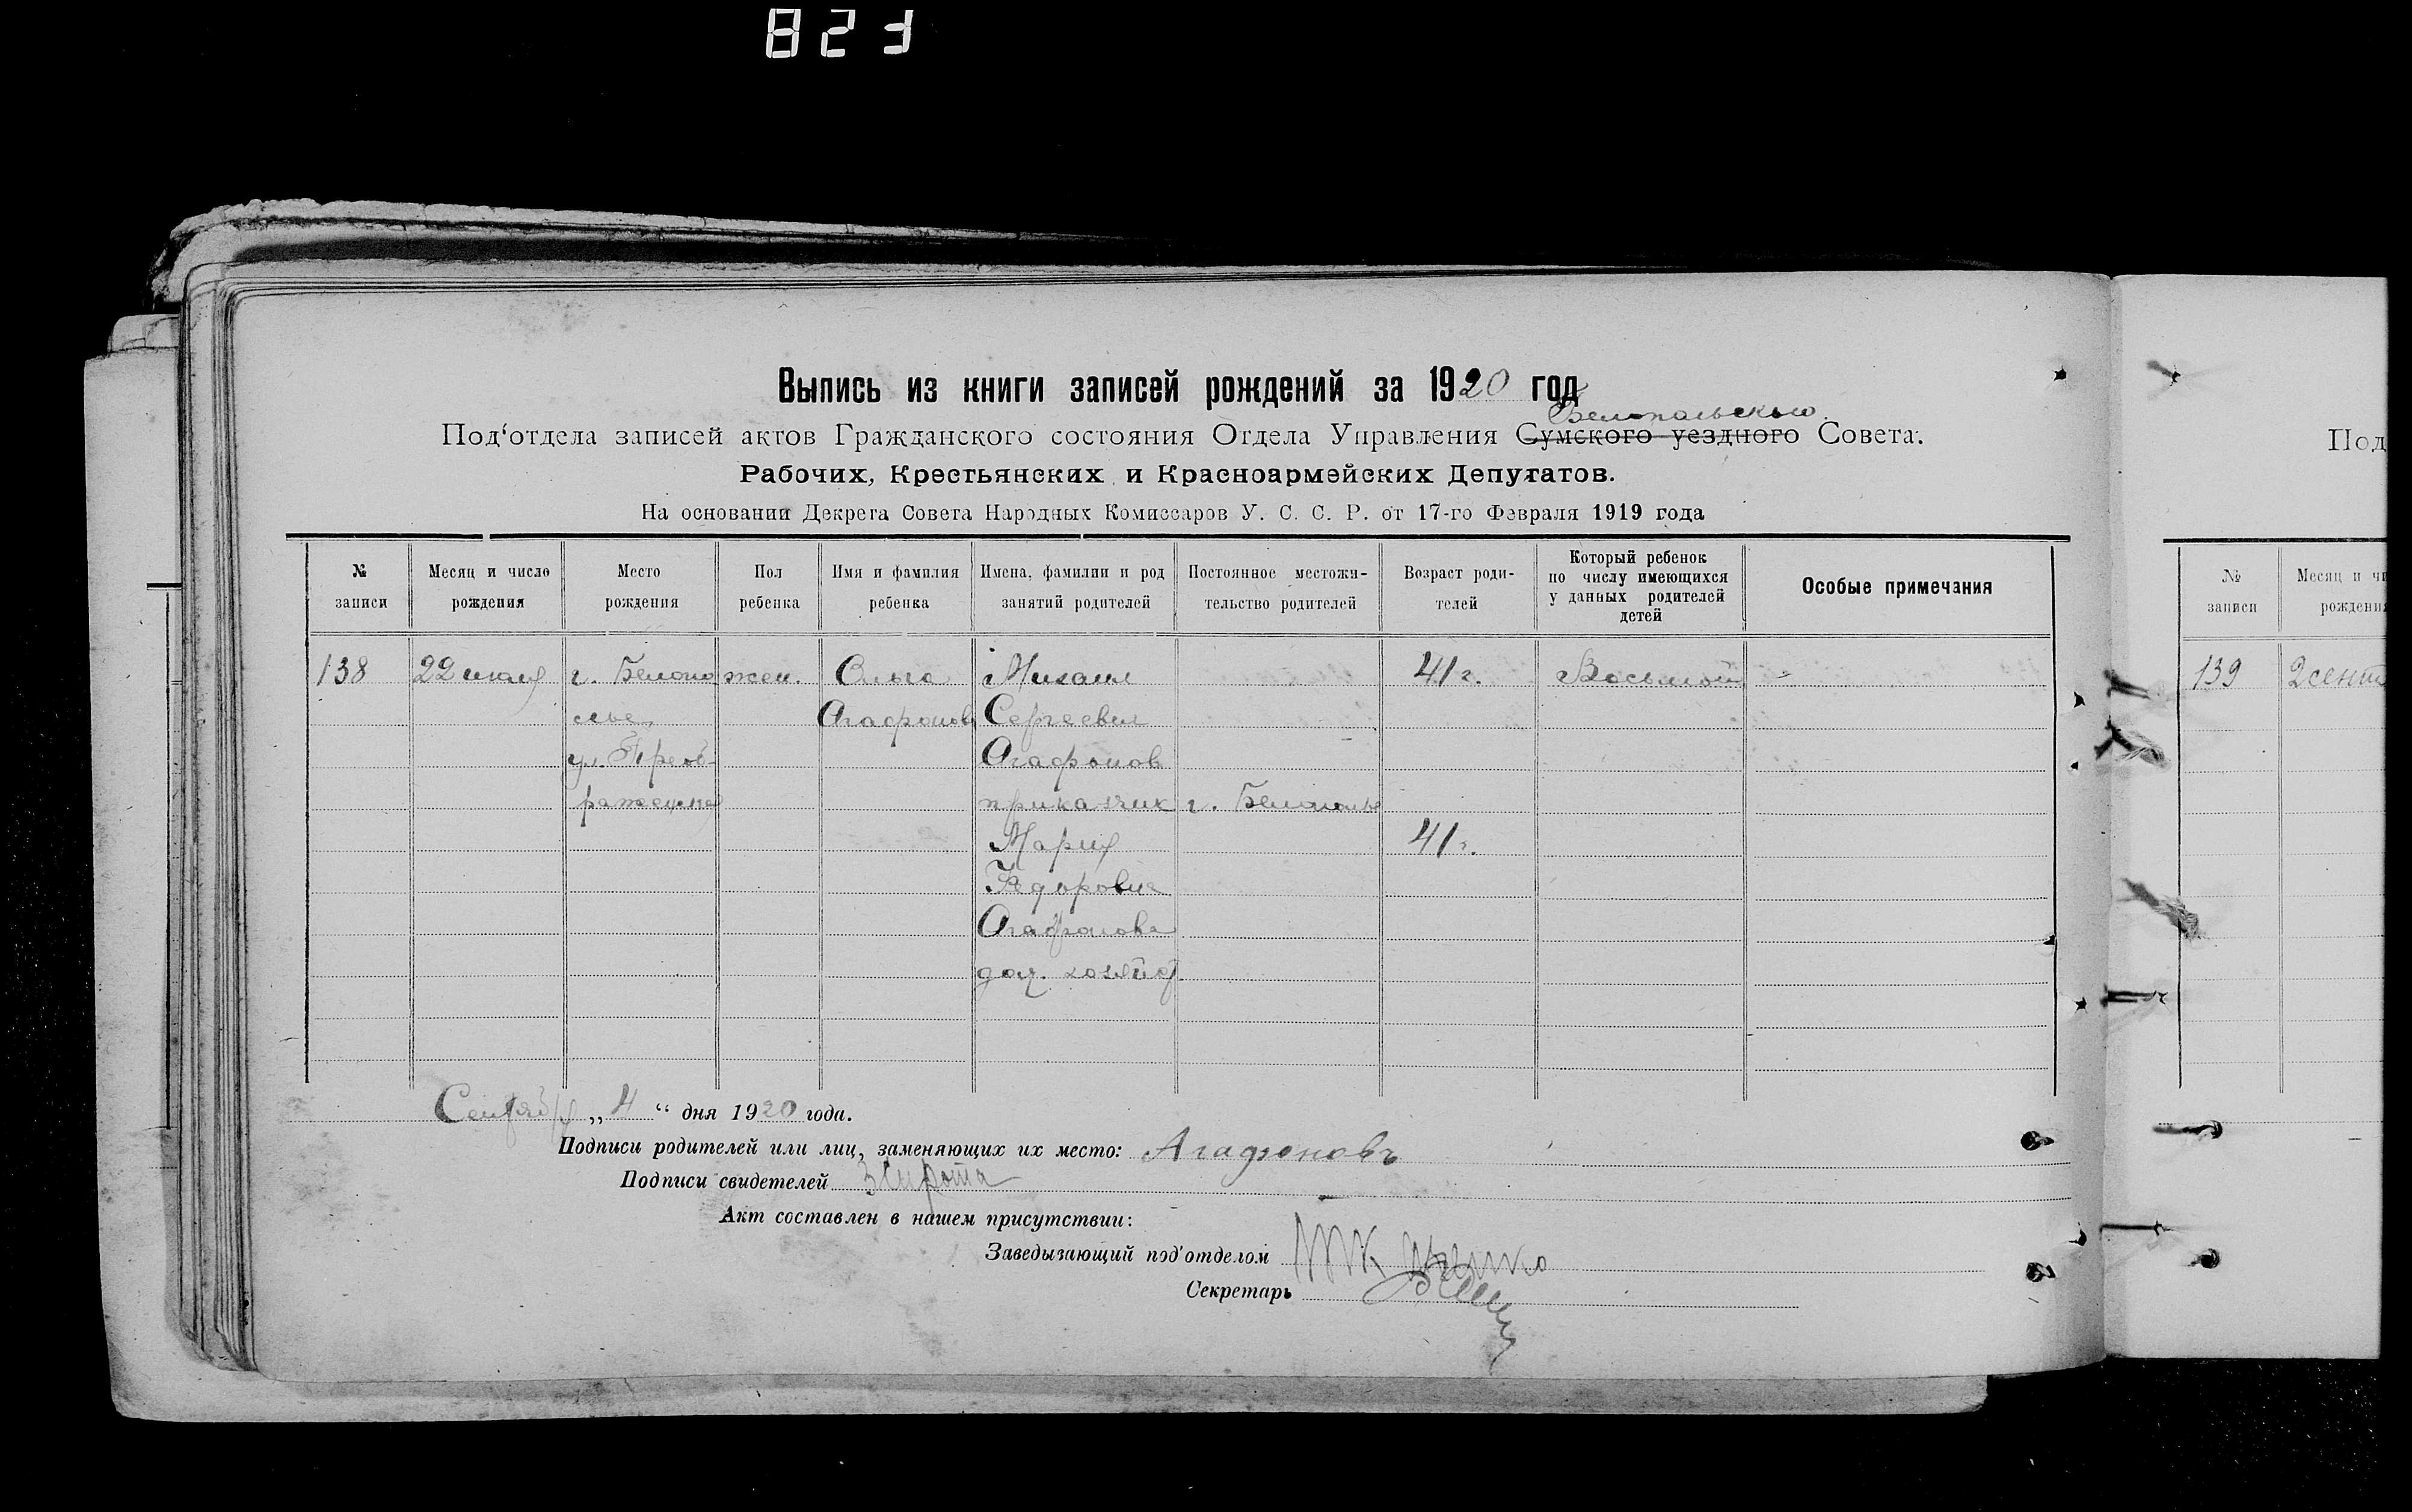 823
Выпись из книги записей рождений за 1920 год
Белопольского
Под‘отдела записей актов Гражданского состояния Отдела Управления Сумского уездного Совета.
Рабочих, Крестьянских и Красноармейских Депутатов.
На основании Декрета Совета Народных Комиссаров У. С. С. Р. от 17-го Февраля 1919 года
№ записи
Месяц и число рождения
Место рождения
Пол ребенка
Имя и фамилия ребенка
Имена, фамилии и род занятий родителей
Постоянное местожи-тельство родителей
Возраст роди-телей
Который ребенок по числу имеющихся у данных родителей детей
Особые примечания
138 22 г. Белопо жен. Ольга Михаил 41 г. Восьмой -
лье Агафонова Сергеевич
ул. Преоб- Агафонов
раженская приказчик г. Белополье
Мария 41 г.
Федоровна
Агафонова
дом. хозяйст
Сентября „ 4 “ дня 1920 года.
Подписи родителей или лиц, заменяющих их место: Агафоновъ
Подписи свидетелей
Акт составлен в нашем присутствии:
Заведызающий под'отделом
Секретарь
Под
№ записи
Месяц и чи
рождения
139 2 сент